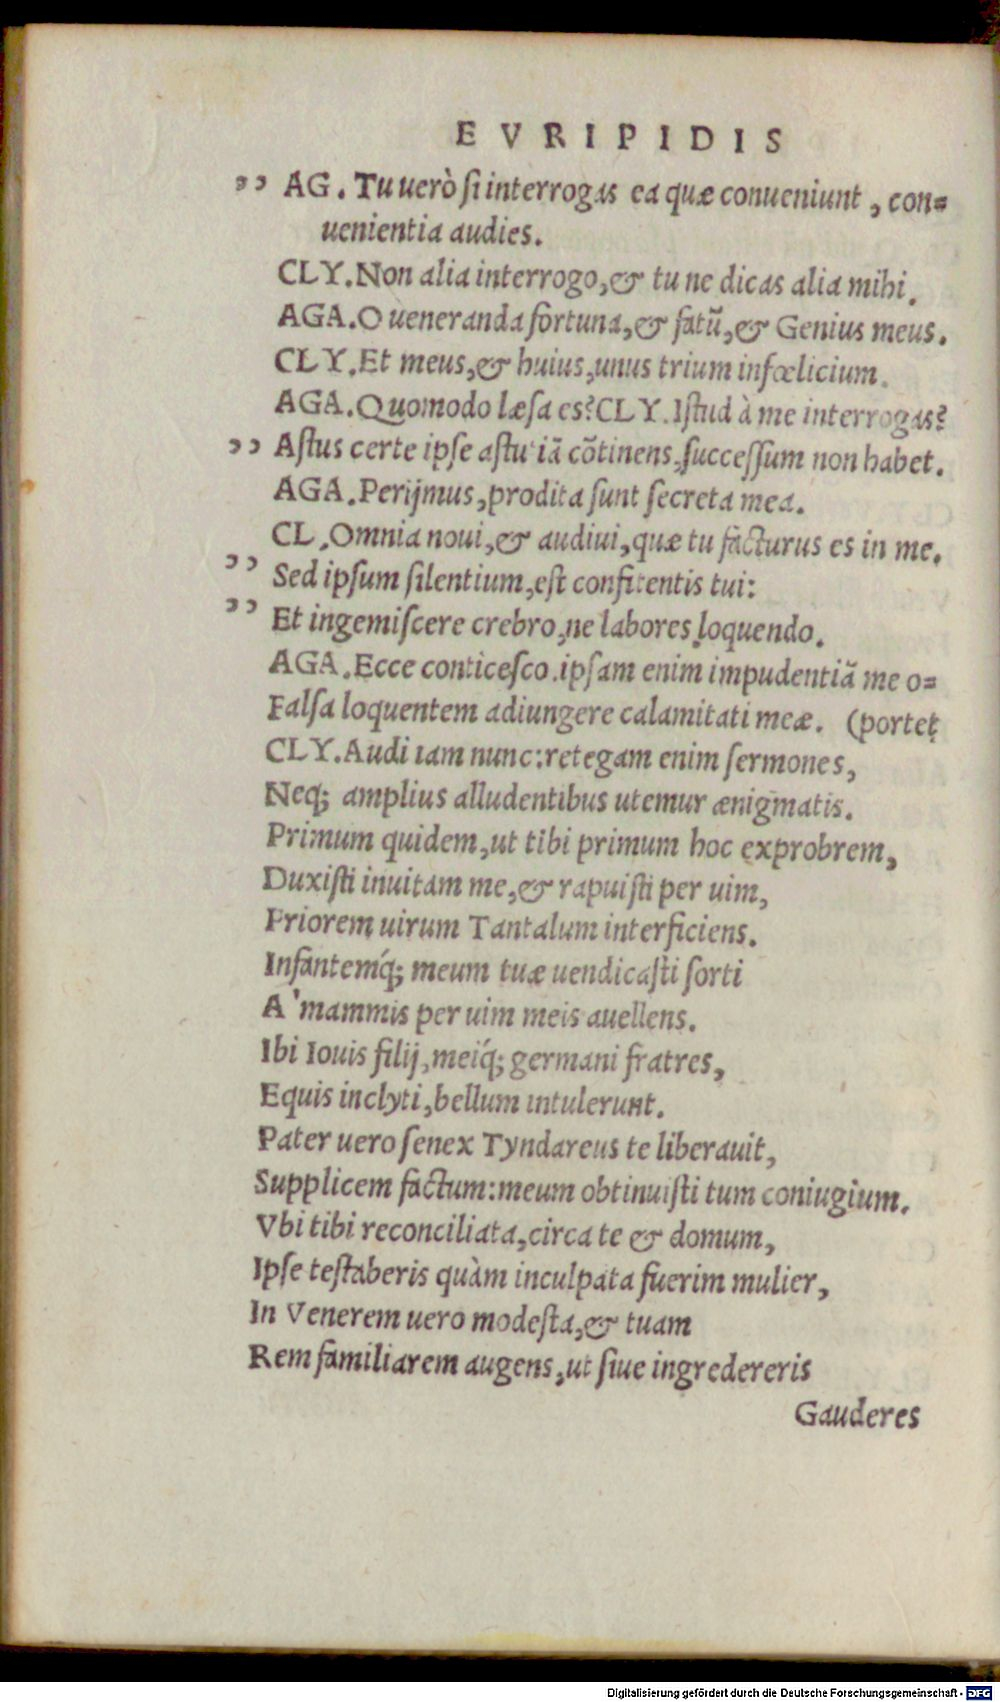 EVRIPIDIS
,, AG. Tu uerò si interrogas ea quæ conueniunt, con=
uenientia audies.
CLY. Non alia interrogo, & tu ne dicas alia mihi.
AGA. O ueneranda fortuna, & fatũ, & Genius meus.
CLY. Et meus, & huius, unus trium infœlicium.
AGA. Quomodo læsa es? CLY. Istud à me interrogas?
,, Astus certe ipse astutiã cõtinens, successum non habet.
AGA. Perijmus, prodita sunt secreta mea.
CL. Omnia noui, & audiui, quæ tu facturus es in me.
,, Sed ipsum silentium, est confitentis tui:
,, Et ingemiscere crebro, ne labores loquendo.
AGA. Ecce conticesco. ipsam enim impudentiã me o=
Falsa loquentem adiungere calamitati meæ. (portet
CLY. Audi iam nunc: retegam enim sermones,
Neq; amplius alludentibus utemur ænigmatis.
Primum quidem, ut tibi primum hoc exprobrem,
Duxisti inuitam me, & rapuisti per uim,
Priorem uirum Tantalum interficiens.
Infantemq́; meum tuæ uendicasti sorti
A' mammis per uim meis auellens.
Ibi Iouis filij, meiq́; germani fratres,
Equis inclyti, bellum intulerunt.
Pater uero senex Tyndareus te liberauit,
Supplicem factum: meum obtinuisti tum coniugium.
Vbi tibi reconciliata, circa te & domum,
Ipse testaberis quàm inculpata fuerim mulier,
In Venerem uero modesta, & tuam
Rem familiarem augens, ut siue ingredereris
Gauderes
Digitalisierung gefördert durch die Deutsche Forschungsgemeinschaft - DFG